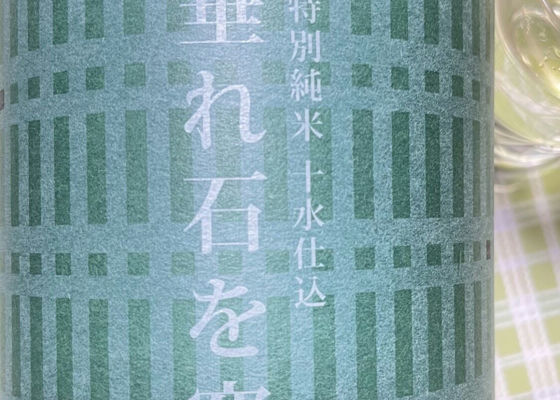 特別純米 十水仕込
垂れ石を穿